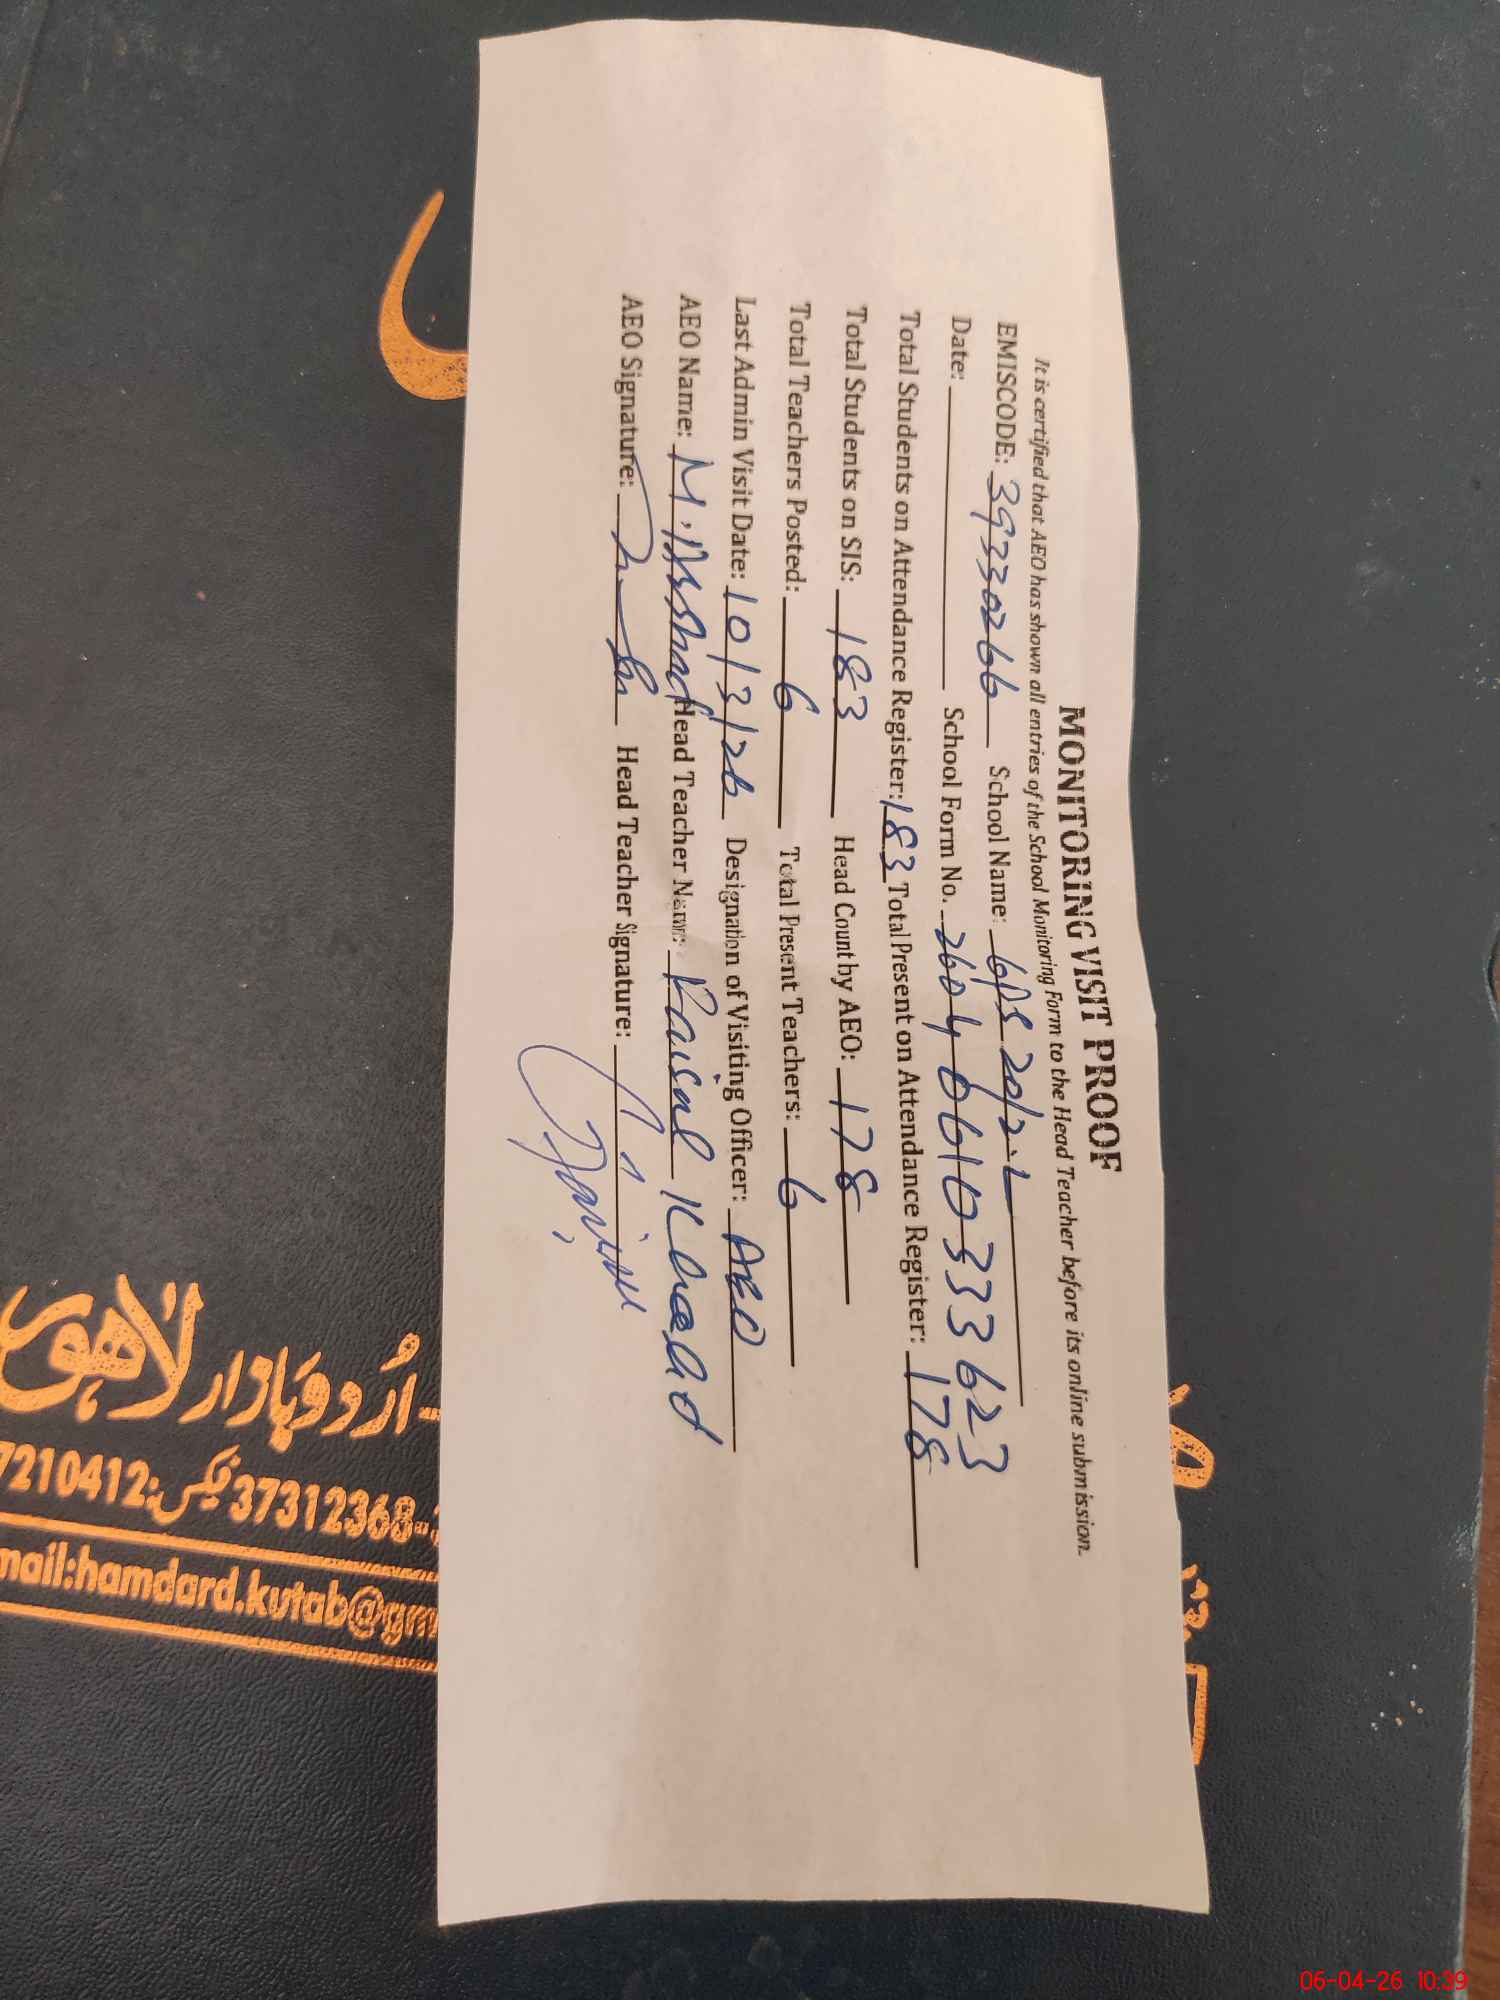 MONITORING VISIT PROOF
It is certified that AEO has shown all entries of the School Monitoring Form to the Head Teacher before its online submission.
EMISCODE: 39330266 School Name: GPS 20/2-L
Date: School Form No. 26040610333623
Total Students on Attendance Register: 183 Total Present on Attendance Register: 178
Total Students on SIS: 183 Head Count by AEO: 178
Total Teachers Posted: 6 Total Present Teachers: 6
Last Admin Visit Date: 10/3/26 Designation of Visiting Officer: AEO
AEO Name: M. Arshad Head Teacher Name:
AEO Signature: Head Teacher Signature:
اُردو بازار لاہور
7210412: فیکس 37312368-
mail:hamdard.kutab@gm
06-04-26 10:39